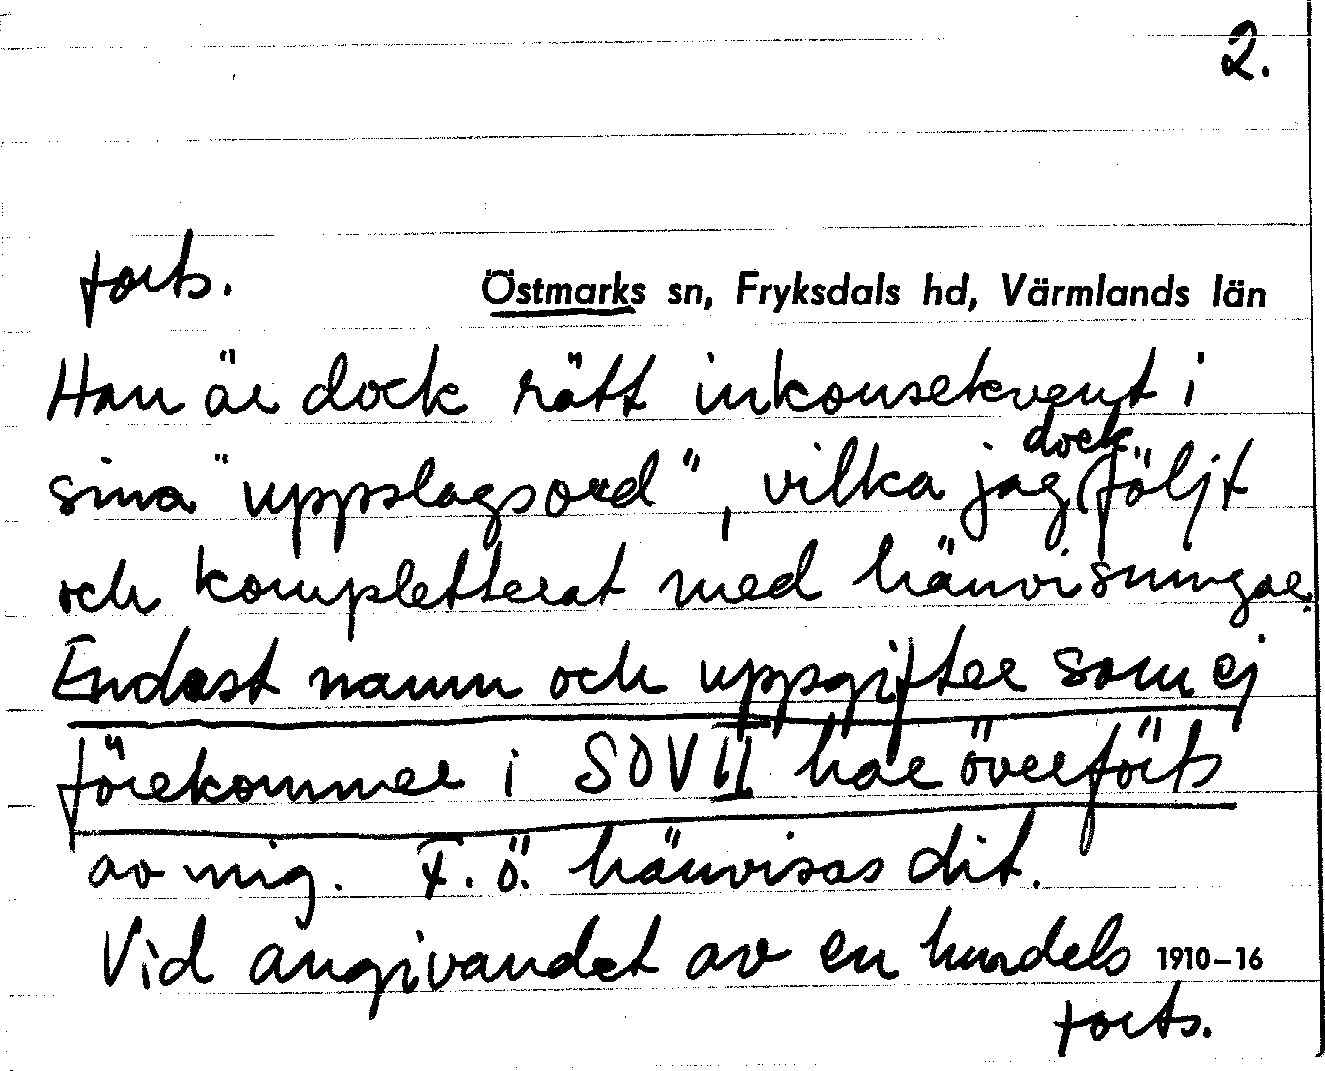 2.
forts.
Östmarks sn, Fryksdals hd, Värmlands län
Han är dock rätt inkonsekvent i
sina "uppslagsord", vilka jag dock följt
och kompletterat med hänvisningar.
Endast namn och uppgifter som ej
förekommer i SOV II har överförts
av mig. F.ö. hänvisas dit.
Vid angivandet av en hundels
1910–16
forts.